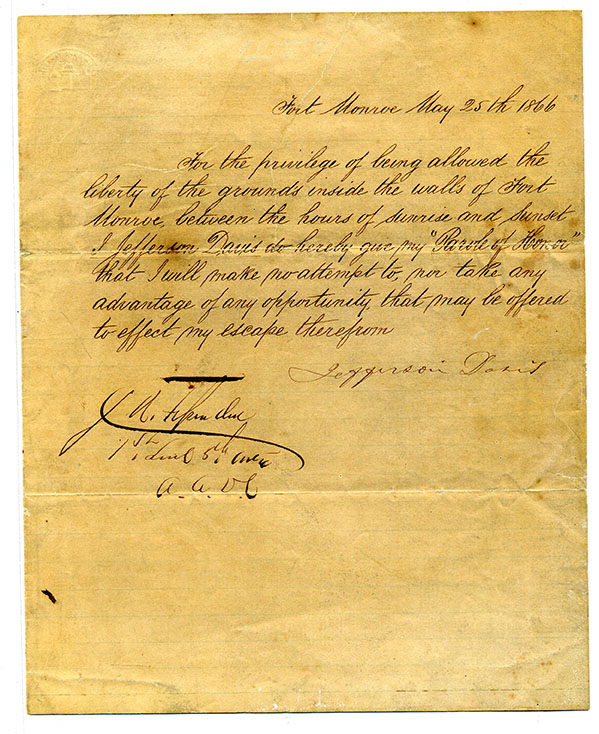 Fort Monroe May 25th 1866
For the privilege of being allowed the
liberty of the grounds inside the walls of Fort
Monroe, between the hours of sunrise and sunset
I Jefferson Davis do hereby give my "Parole of Honor"
that I will make no attempt to, nor take any
advantage of any opportunity that may be offered
to effect my escape therefrom
Jefferson Davis
1st Lieut 5th
A. A. D. C